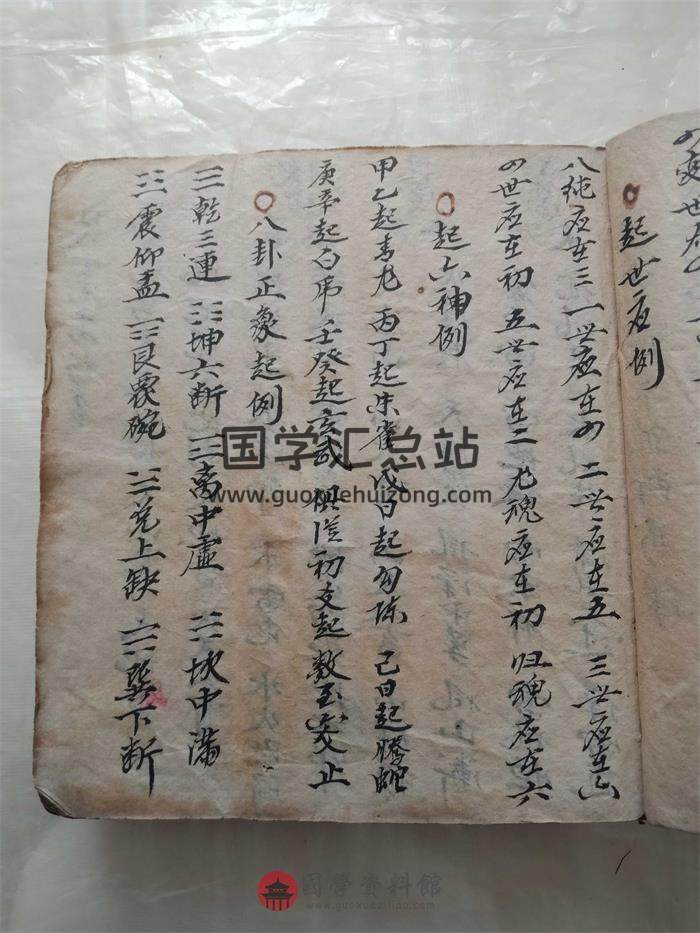 起世应例
八純应在三 一世应在四 二世应在五 三世应在六
四世应在初 五世应在二 尤魂应在初 归魂应在六
起六神例
甲乙起青尤 丙丁起朱雀 戊日起勾陈 己日起腾蛇
庚辛起白虎 壬癸起玄武 俱從初爻起数至六爻止
八卦正象起例
☰乾三連 ☷坤六断 ☲离中虚 ☵坎中滿
☳震仰盂 ☶艮覆碗 ☱兑上缺 ☴巽下断
国学汇总站
www.guoxuehuizong.com
國學資料館
www.guoxueziliao.com